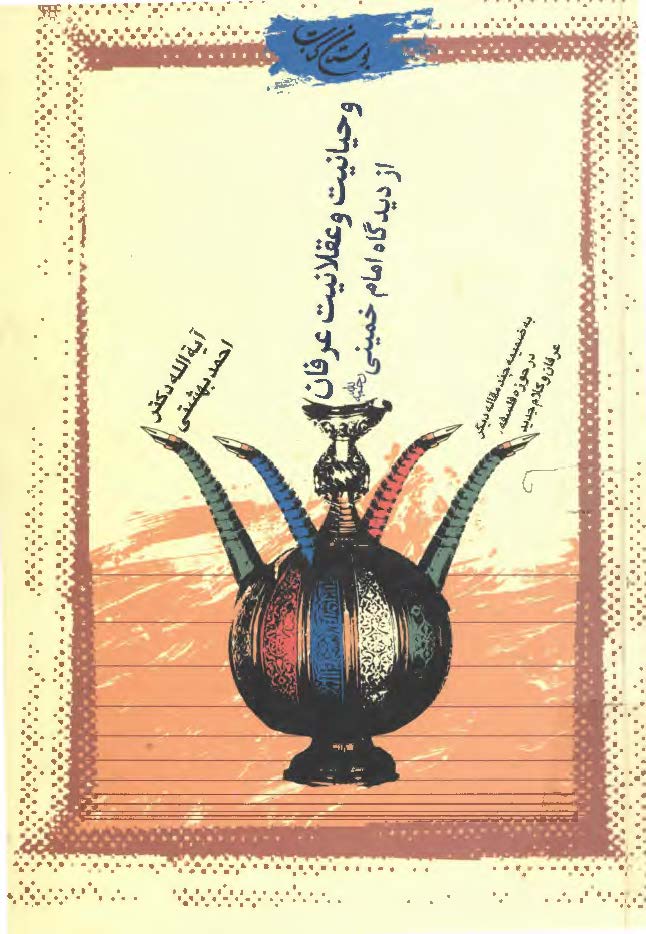 بوستان کتاب
وحیانیت و عقلانیت عرفان
از دیدگاه امام خمینی
آیة الله دکتر
احمد بهشتی
به ضمیمه چند مقاله دیگر
در حوزه فلسفه،
عرفان و کلام جدید